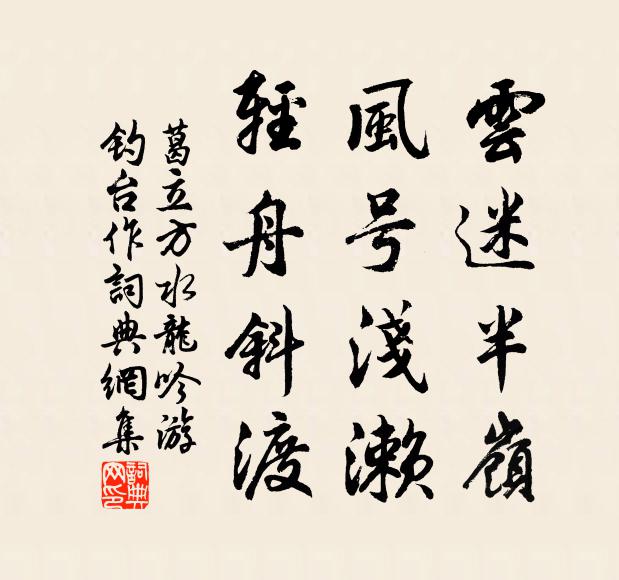 雲迷半嶺
風号淺瀨
輕舟斜渡
葛立方水龍吟游
釣台作詞典網集
詞典网印